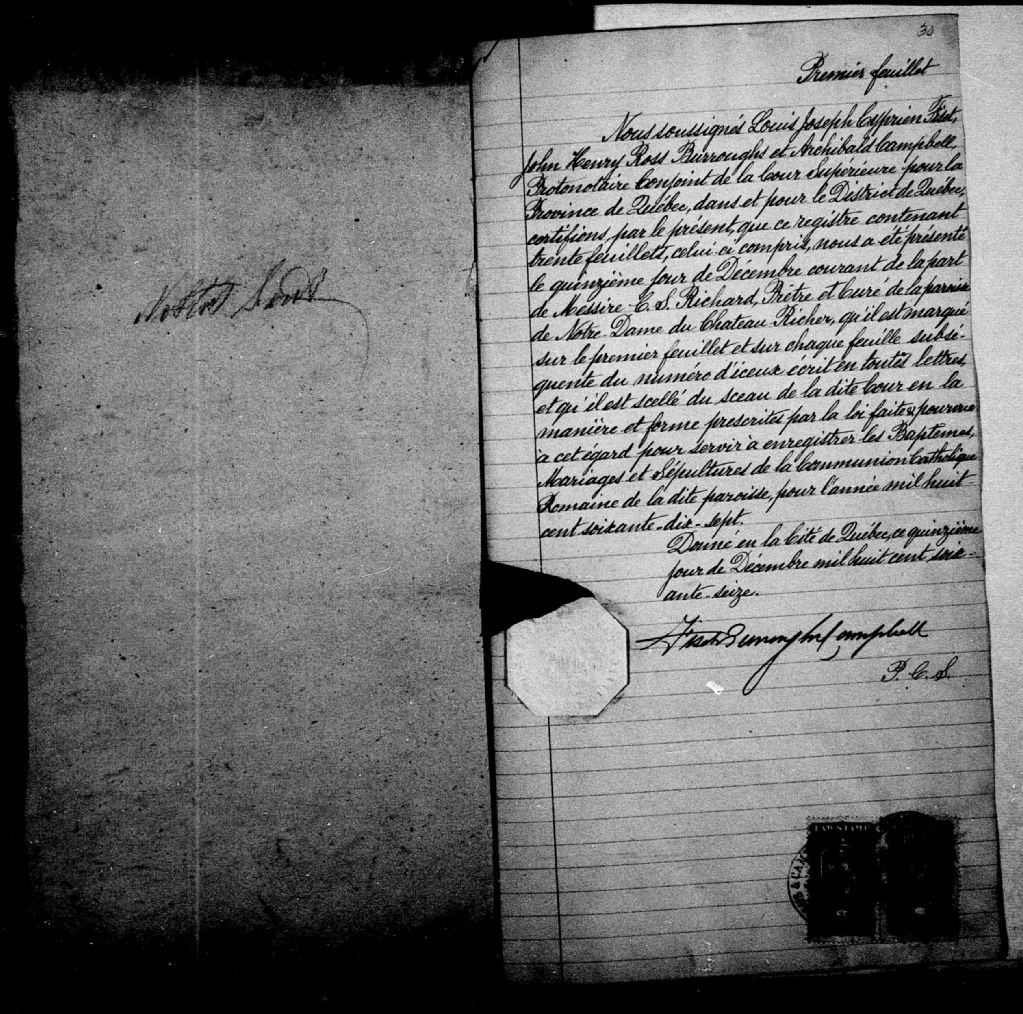 30
Premier feuillet
Nous soussignés Louis Joseph Cyprien Fiset,
John Henry Ross Burroughs et Archibald Campbell,
Protonotaire Conjoint de la Cour Supérieure pour la
Province de Québec, dans et pour le District de Québec,
certifions par le présent, que ce registre contenant
trente feuillets, celui-ci compris, nous a été présenté
le quinzième jour de Décembre courant de la part
de Messire C. S. Richard, Prêtre et Curé de la paroisse
de Notre-Dame du Chateau Richer, qu'il est marqué
sur le premier feuillet et sur chaque feuille subsé-
quente du numéro d'iceux écrit en toutes lettres,
et qu'il est scellé du sceau de la dite Cour en la
manière et forme prescrites par la loi faite & pourvue
à cet égard pour servir à enregistrer les Baptemes,
Mariages et Sépultures de la Communion Catholique
Romaine de la dite paroisse, pour l'année mil huit
cent soixante-dix-sept.
Donné en la Cité de Québec, ce quinzième
jour de Décembre mil huit cent soix-
ante-seize.
Fiset Burroughs Campbell
P. C. S.
LAW STAMP